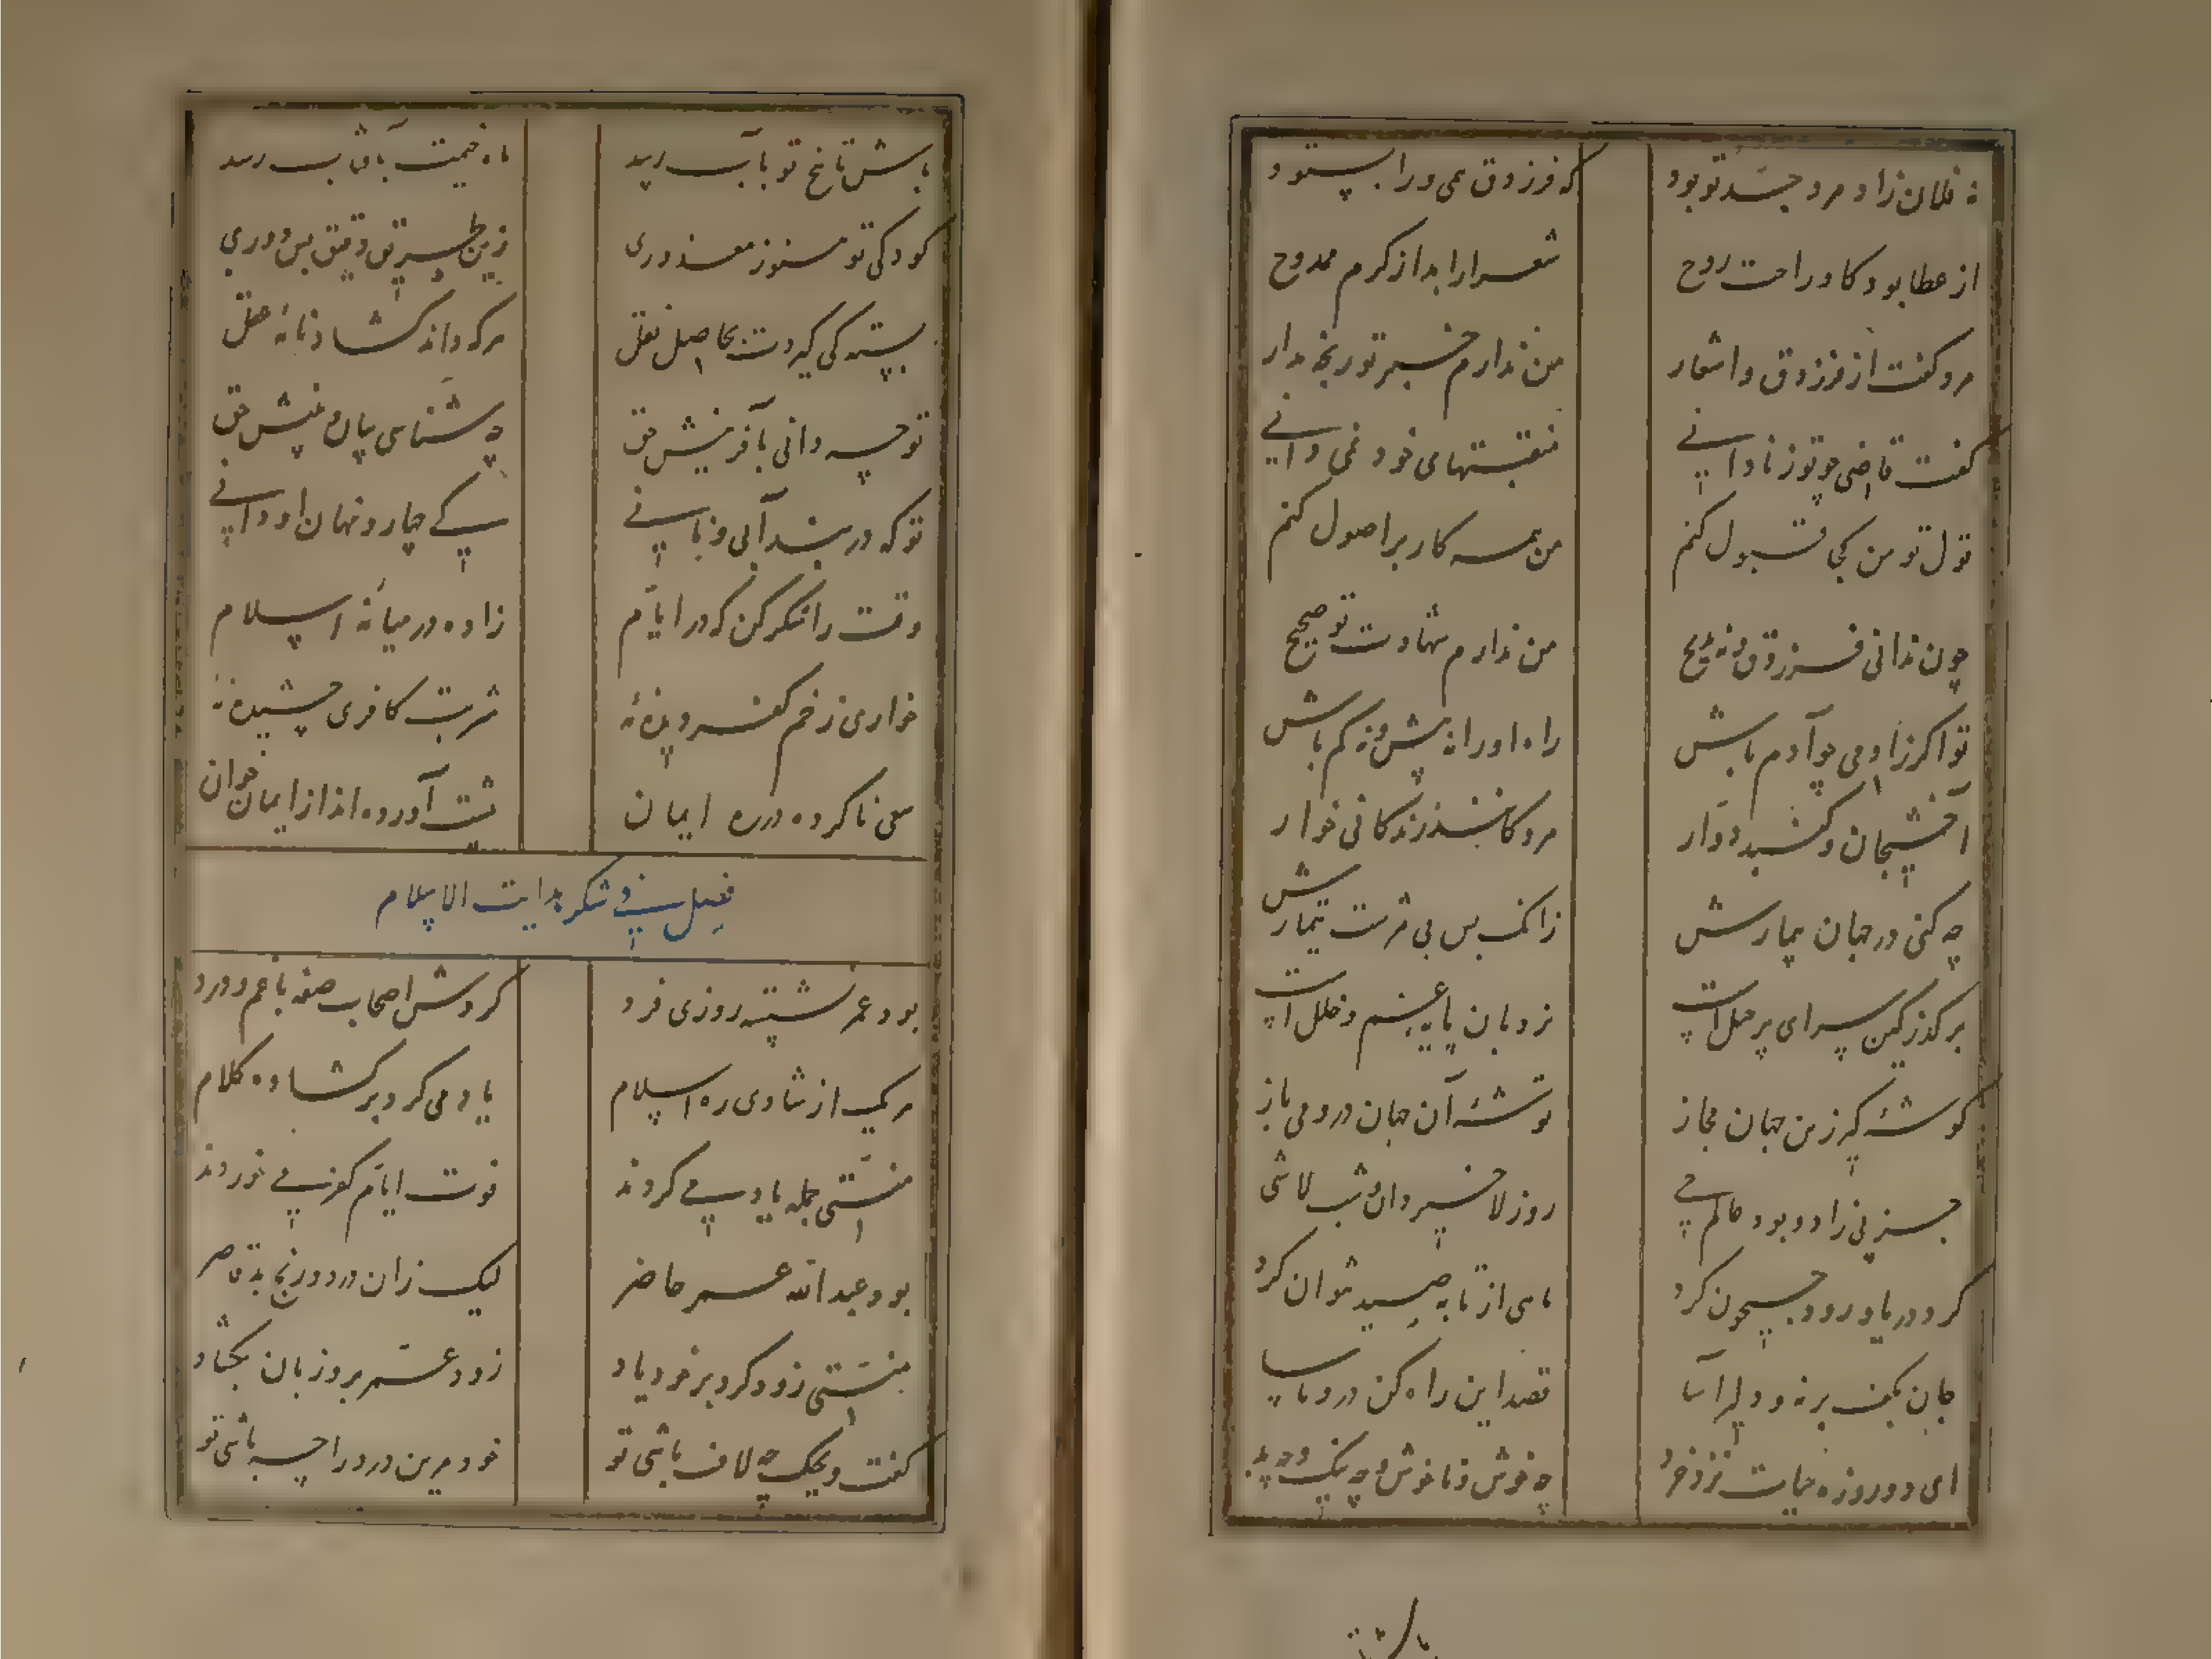 نه فلان زاد مرد جد تو بود که فرزدق همی ورا بستود
از عطا بود کا و راحت روح شعرا را بد از کرم ممدوح
مرد گفت از فرزدق و اشعار من ندارم خبر تو رنجه مدار
گفت قاضی چو تو ز نادانی منقبتهای خود نمی دانی
قول تو من کجا قبول کنم من همه کار بر اصول کنم
چون ندانی فرزدق و نه مدیح من ندارم شهادت تو صحیح
تو اگر زادمی چو آدم باش راه او را نه بیش و نه کم باش
آخشیجان و گنبد دوار مرد کانند زندگانی خوار
چه کنی در جهان بیمارش زانک بس بی مزست تیمارش
برگذر کین سرای پر خلل است نردبان پایه
گوشهٔ گیر زین جهان مجاز توشهٔ آن جهان درو می باز
روز لا خیر دان و شب لاشی
گرد دریا و رود جیحون گرد ماهی از تابه صید نتوان کرد
جان بکف برنه و دلیر آسا قصد این راه کن درو ماسا
ای دو روزه حیات نزد خرد چه خوش و ناخوش و چه نیک و چه بد
باش تا نخ تو بآب رسد ماه خیمت بآفتاب رسد
کودکی تو هنوز معذوری زین طریق دقیق بس دوری
بسته کی گیردت بحاصل نقل هرکه داند گشاد نامهٔ عقل
تو چه دانی بآفرینش حق چه شناسی بیان و بینش حق
تو که در بند آبی و نانی کی چهار و نهان او دانی
وقت را شکر کن که در ایام زادهٔ در میانهٔ اسلام
خواری زخم کفر ویدهٔ نه شربت کافری چشیده نهٔ
سعی ناکرده در ره ایمان نشت آورده اند از ایمان خوان
فصل فی شکر هدایت الاسلام
بود عمر نشسته روزی فرد گردش اصحاب صفه با غم و درد
هر یک از شادی ره اسلام یاد می کرد برگشاده کلام
منتی جمله یاد می کردند فوت ایام کفر می خوردند
بود عبدالله عمر حاضر لیک زان درد و رنج بد قاصر
منتی زود کرد بر خود یاد زود عمر برو زبان بگشاد
گفت ویحک چه لاف باشی تو خود مرین درد را چه باشی تو